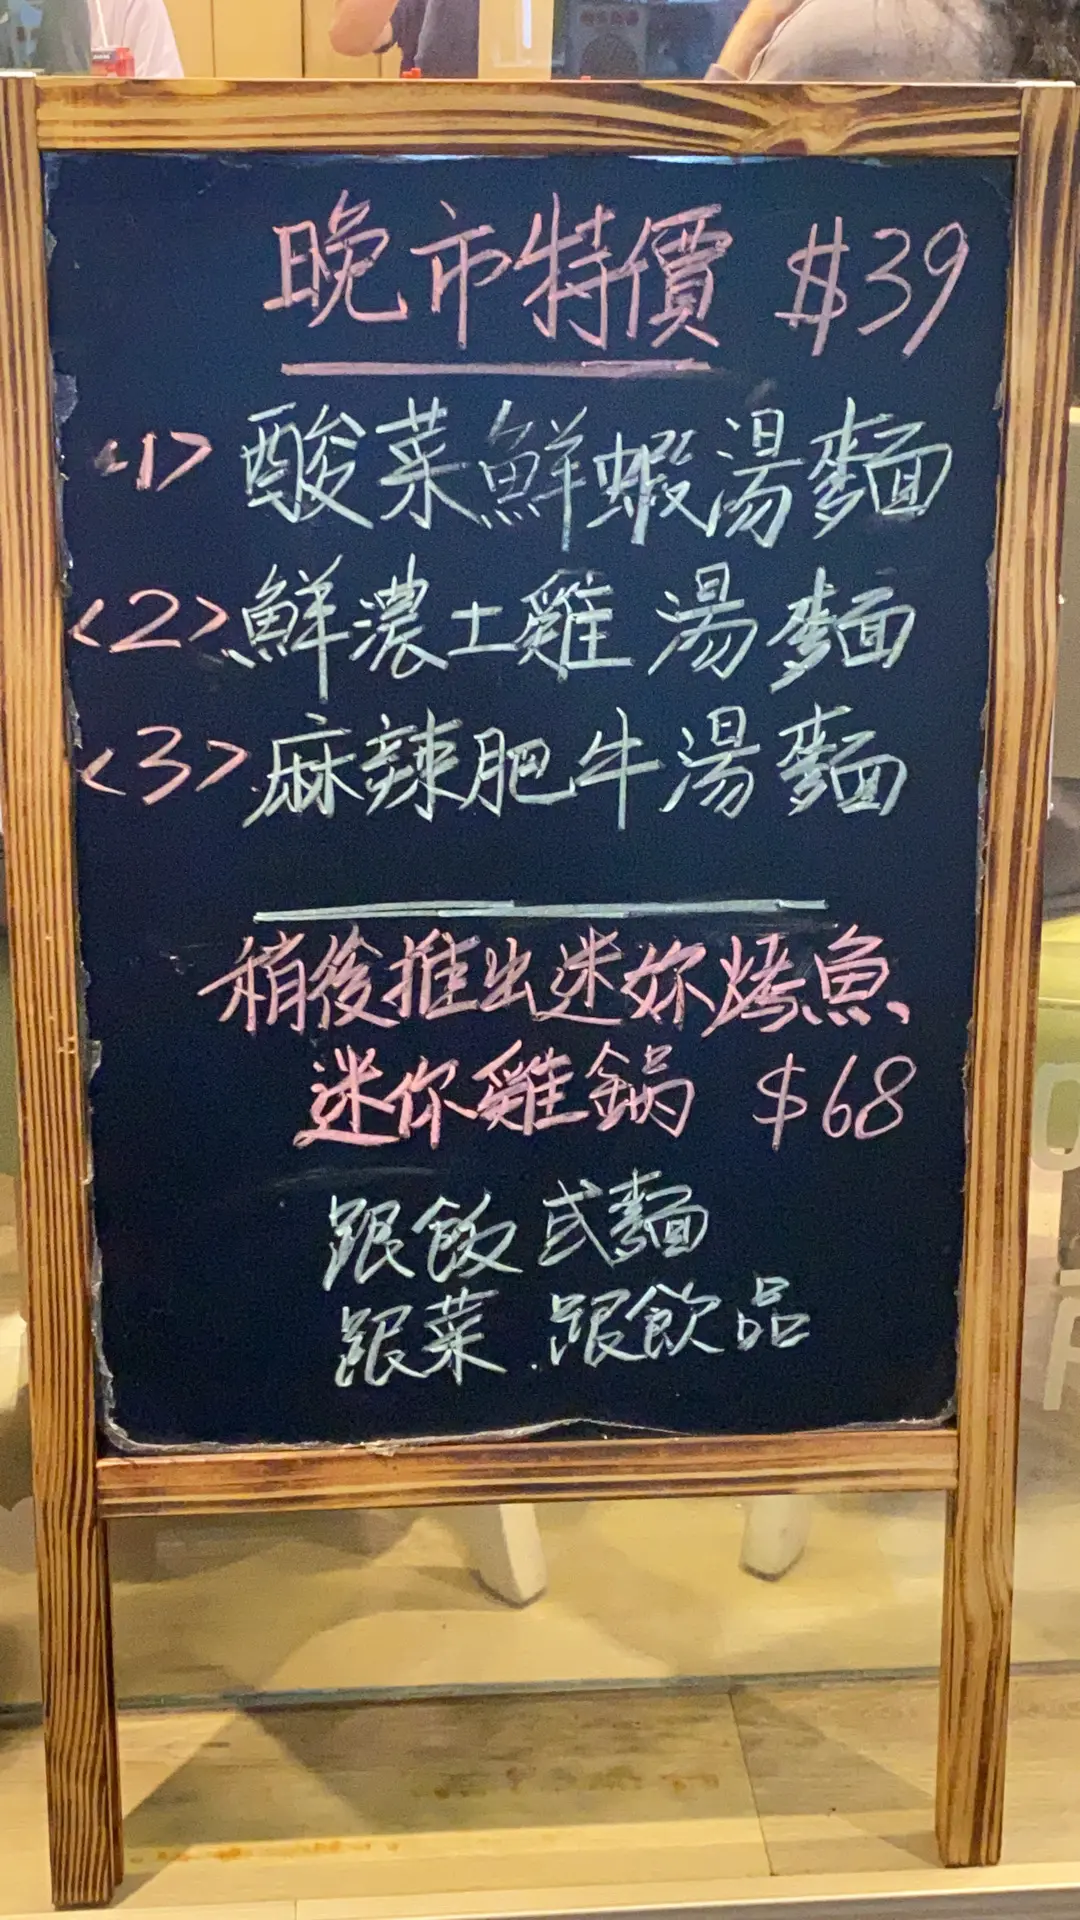 晚市特價 $39
<1> 酸菜鮮蝦湯麵
<2> 鮮濃土雞湯麵
<3> 麻辣肥牛湯麵
稍後推出迷妳烤魚、
迷你雞鍋 $68
跟飯或麵
跟菜.跟飲品